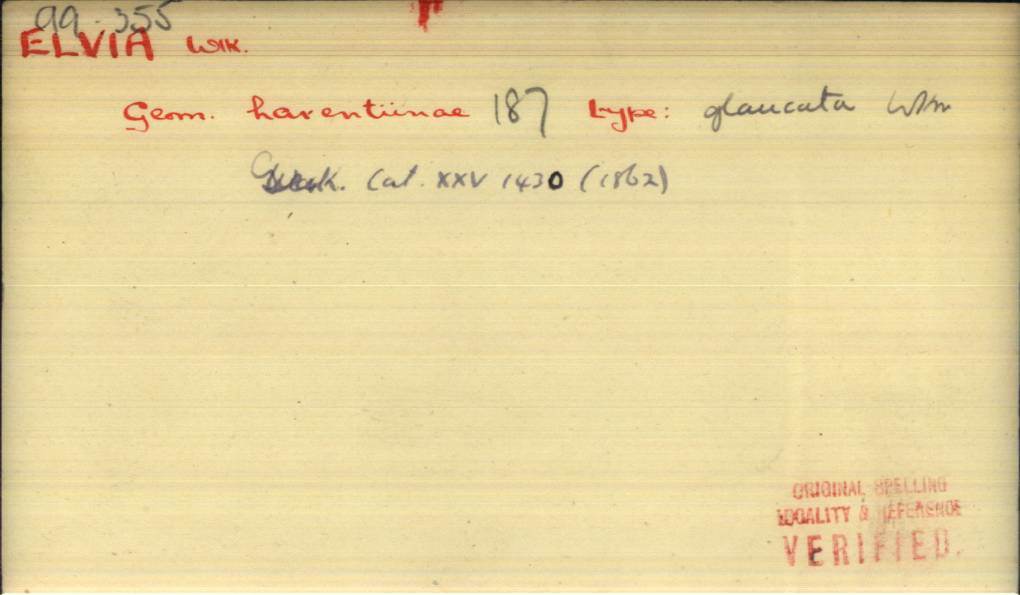 99-355
ELVIA Wlk.
Geom. larentiinae 187 type: glaucata Wlk
Cat. XXV 1430 (1862)
ORIGINAL SPELLING
LOCALITY & REFERENCE
VERIFIED.